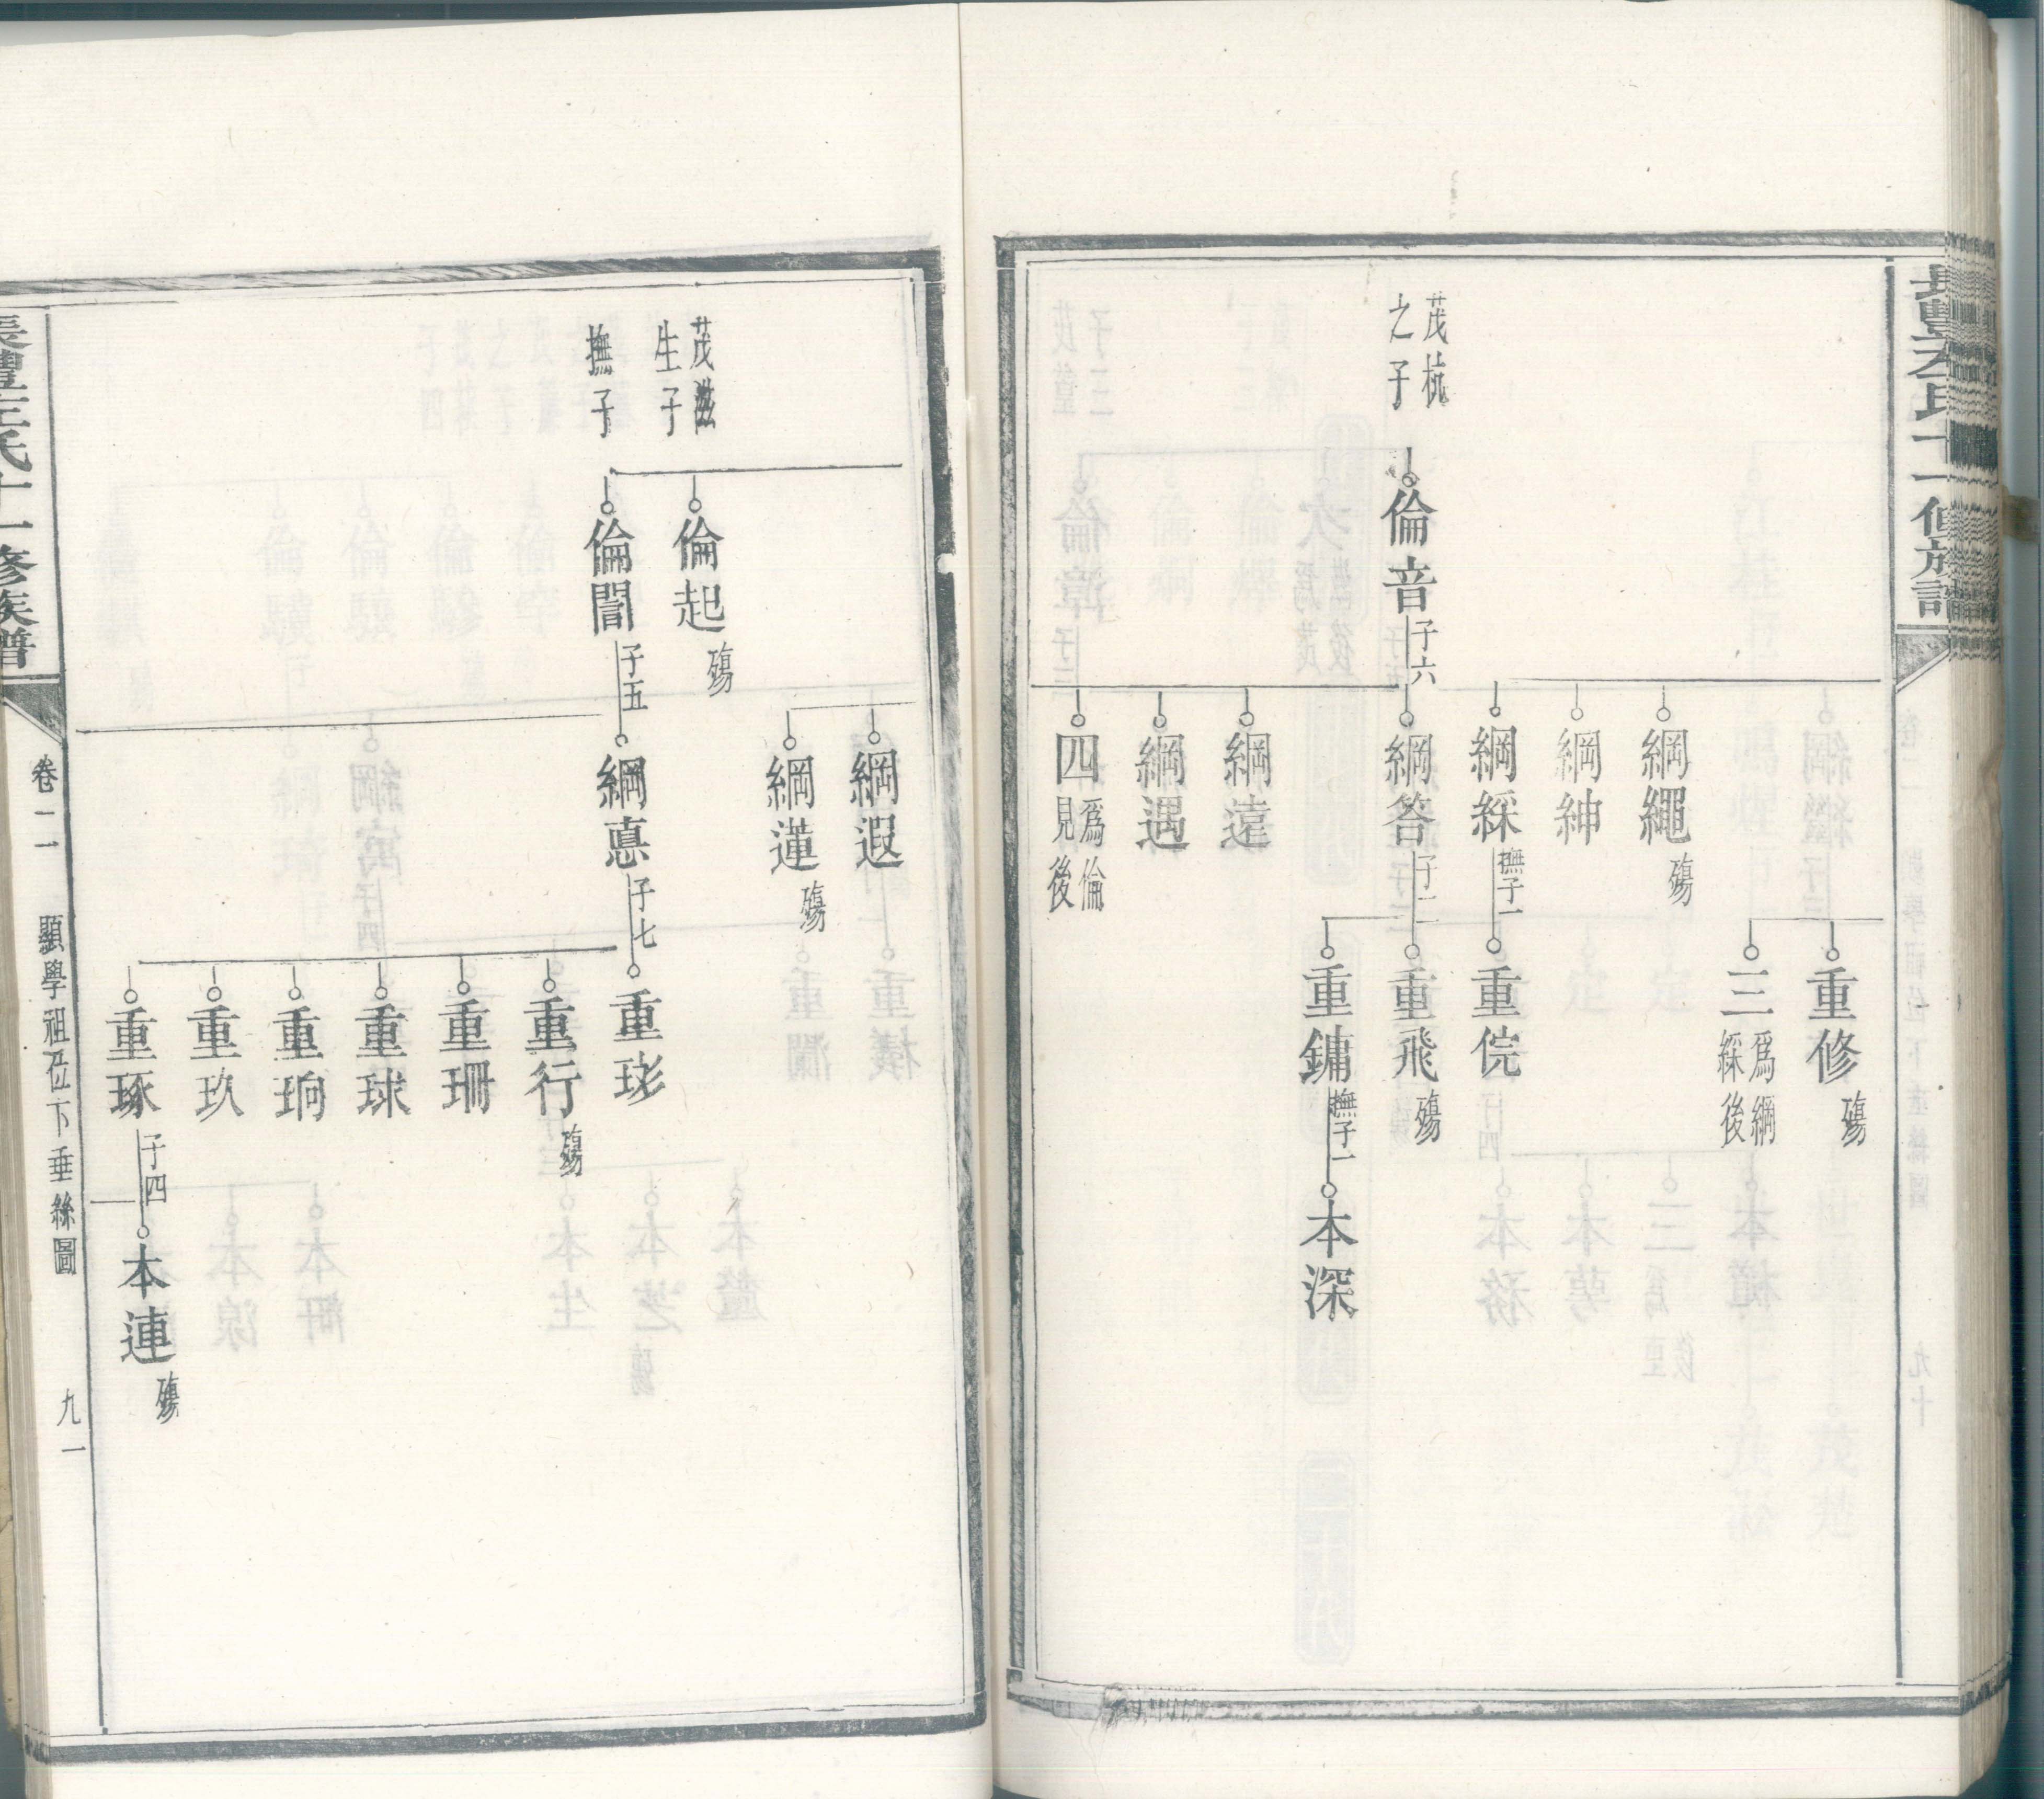 茂杭
之子
倫音
子六
綱繩
殤
綱紳
綱綵
撫子一
綱答
子二
綱遠
綱遇
四
爲倫
見後
重修
殤
三
爲綱
綵後
重俒
重飛
殤
重鏞
撫子一
本深
茂滋
生子
撫子
倫起
殤
倫誾
子五
綱遐
綱蓮
殤
綱悳
子七
重珳
重行
殤
重珊
重球
重珦
重玖
重琢
子四
本連
殤
氏十一修族譜
卷二
顯學祖位下垂絲圖
九一